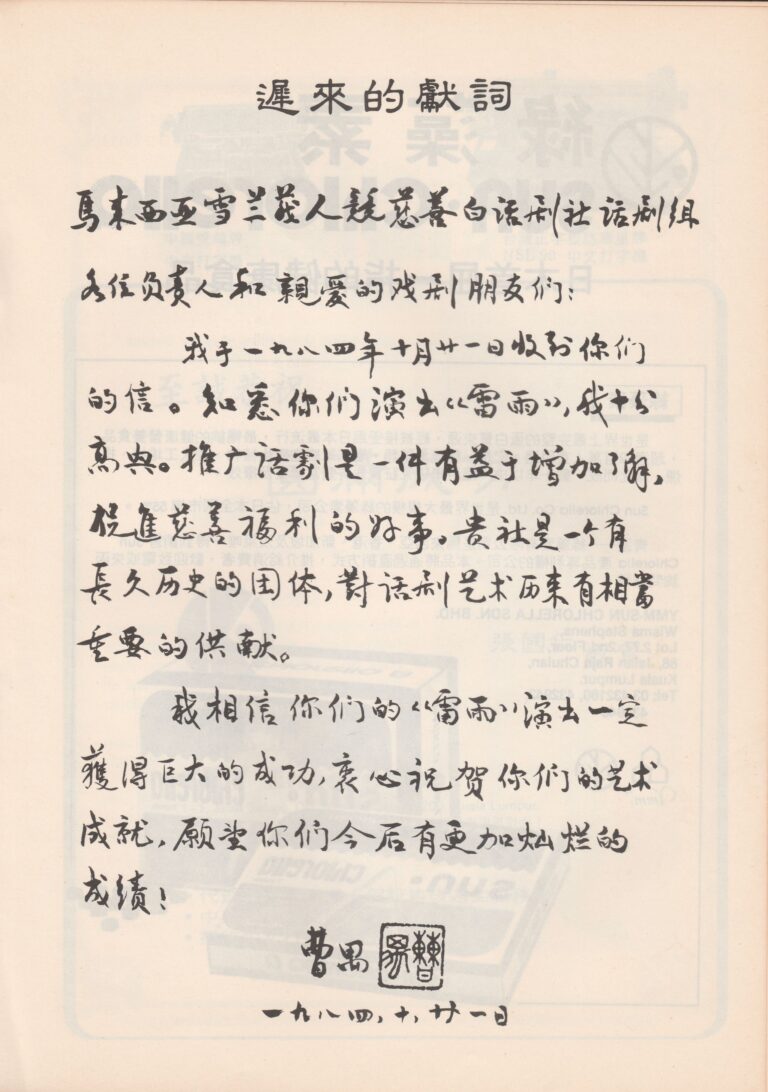 遲來的獻詞
馬来西亚雪兰莪人競慈善白话剧社话剧组
各位负责人和親爱的戏剧朋友们：
我于一九八四年十月廿一日收到你们
的信。知悉你们演出《雷雨》，我十分
高兴。推广话劇是一件有益于增加了解，
促進慈善福利的好事。贵社是一个有
長久历史的团体，對话剧艺术历来有相當
重要的供献。
我相信你们的《雷雨》演出一定
獲得巨大的成功，衷心祝贺你们的艺术
成就，願望你们今后有更加灿烂的
成绩！
曹禺
一九八四，十，廿一日